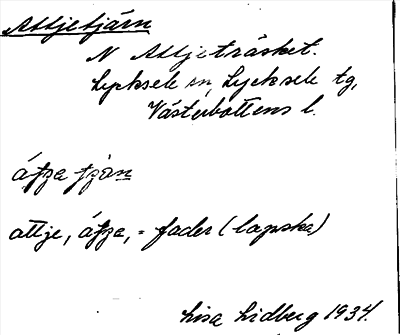 Attjetjärn
N Attjeträsket.
Lycksele sn, Lycksele tg,
Västerbottens l.
áƫƷa tjän
attje, áƫƷa, = fader (lapska)
Lisa Lidberg 1934.